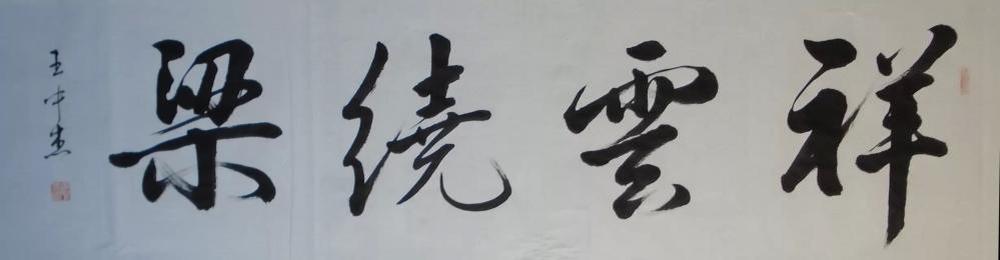 祥雲繞梁
王中杰